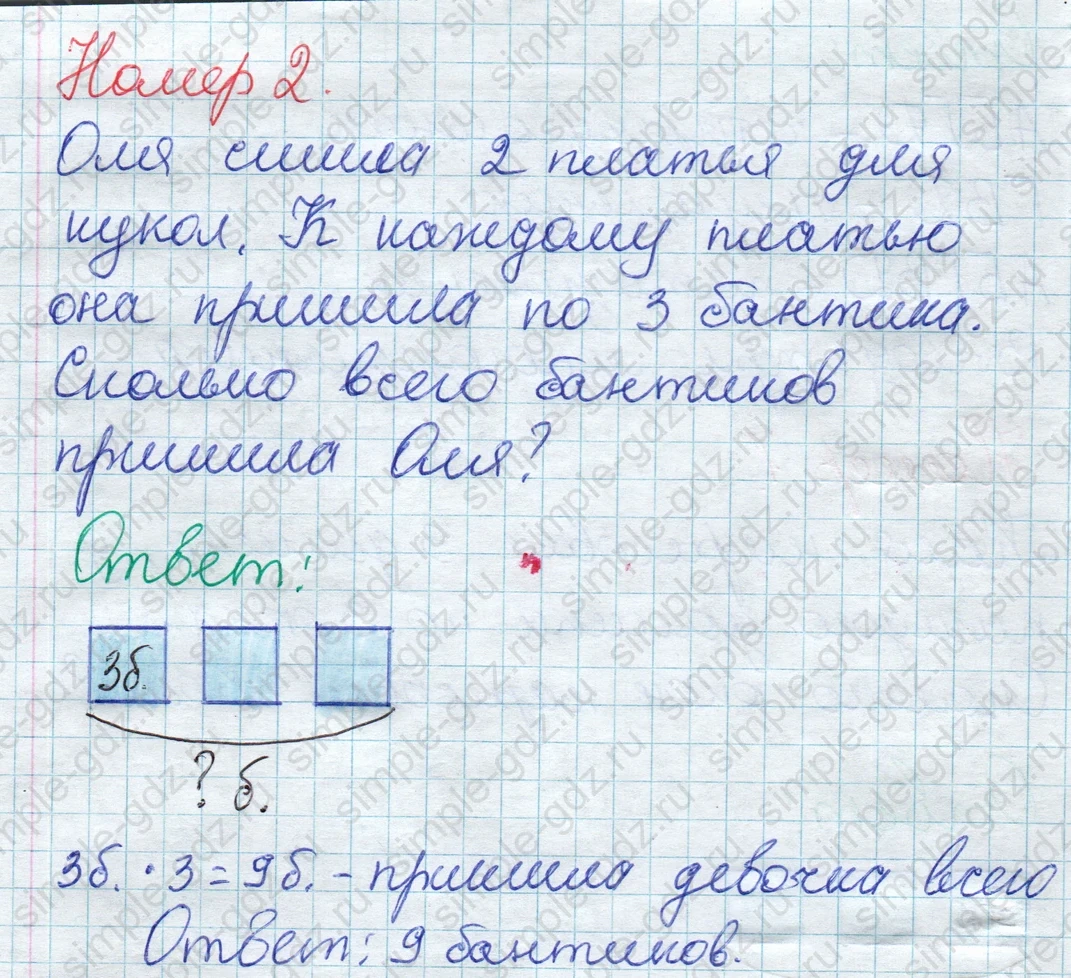 Номер 2.
Оля сшила 2 платья для
кукол. К каждому платью
она пришила по 3 бантика.
Сколько всего бантиков
пришила Оля?
Ответ:
3б.
? б.
3б. · 3 = 9б. - пришила девочка всего
Ответ: 9 бантиков.
simple-gdz.ru